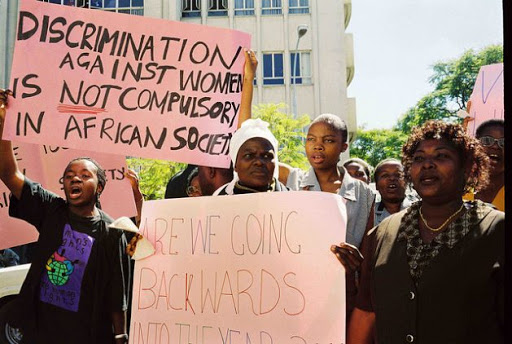 DISCRIMINATION
AGAINST WOMEN
IS NOT COMPULSORY
IN AFRICAN SOCIETY
ARE WE GOING
BACKWARDS
INTO THE YEAR